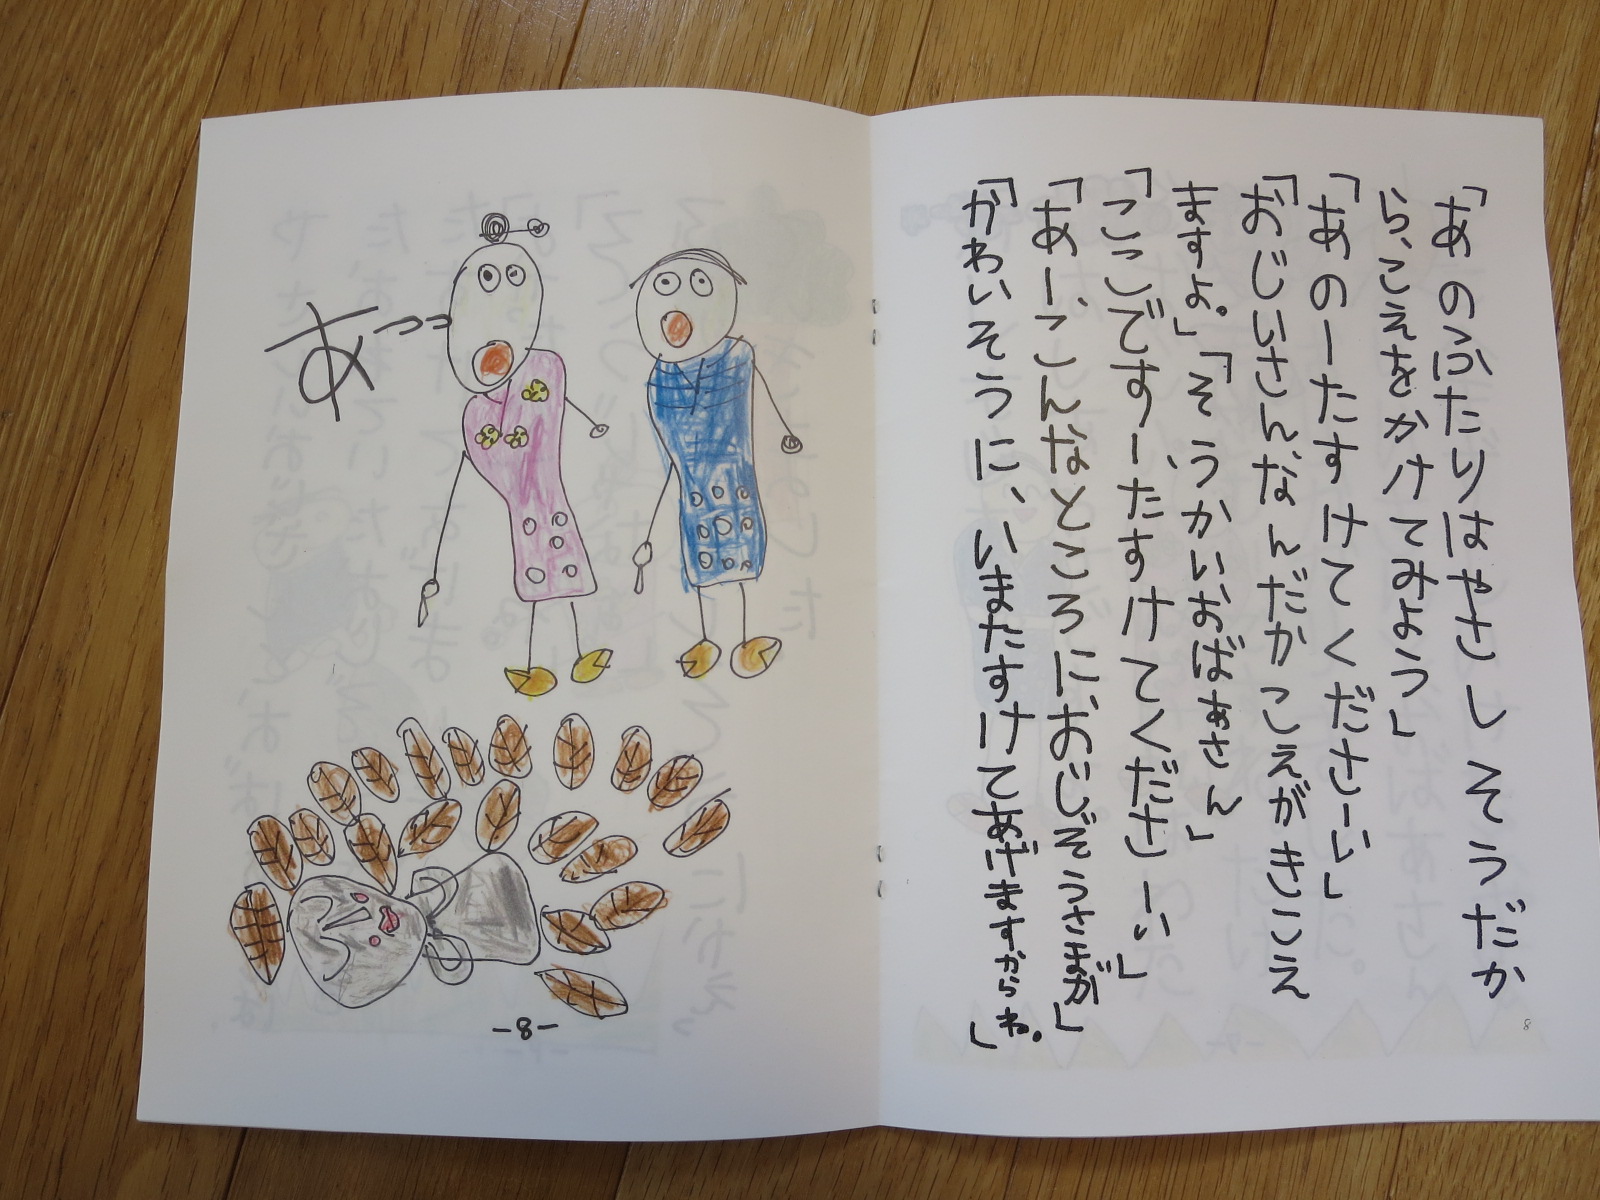 「あのふたりはやさしそうだか
ら、こえをかけてみよう」
「あのーたすけてくださーい」
「おじいさん、なんだかこえがきこえ
ますよ。」「そうかいおばぁさん」
「ここですー、たすけてくださーい」
「あー、こんなところに、おじぞうさまが」
「かわいそうに、いまたすけてあげますからね。」
8
あっ
-8-